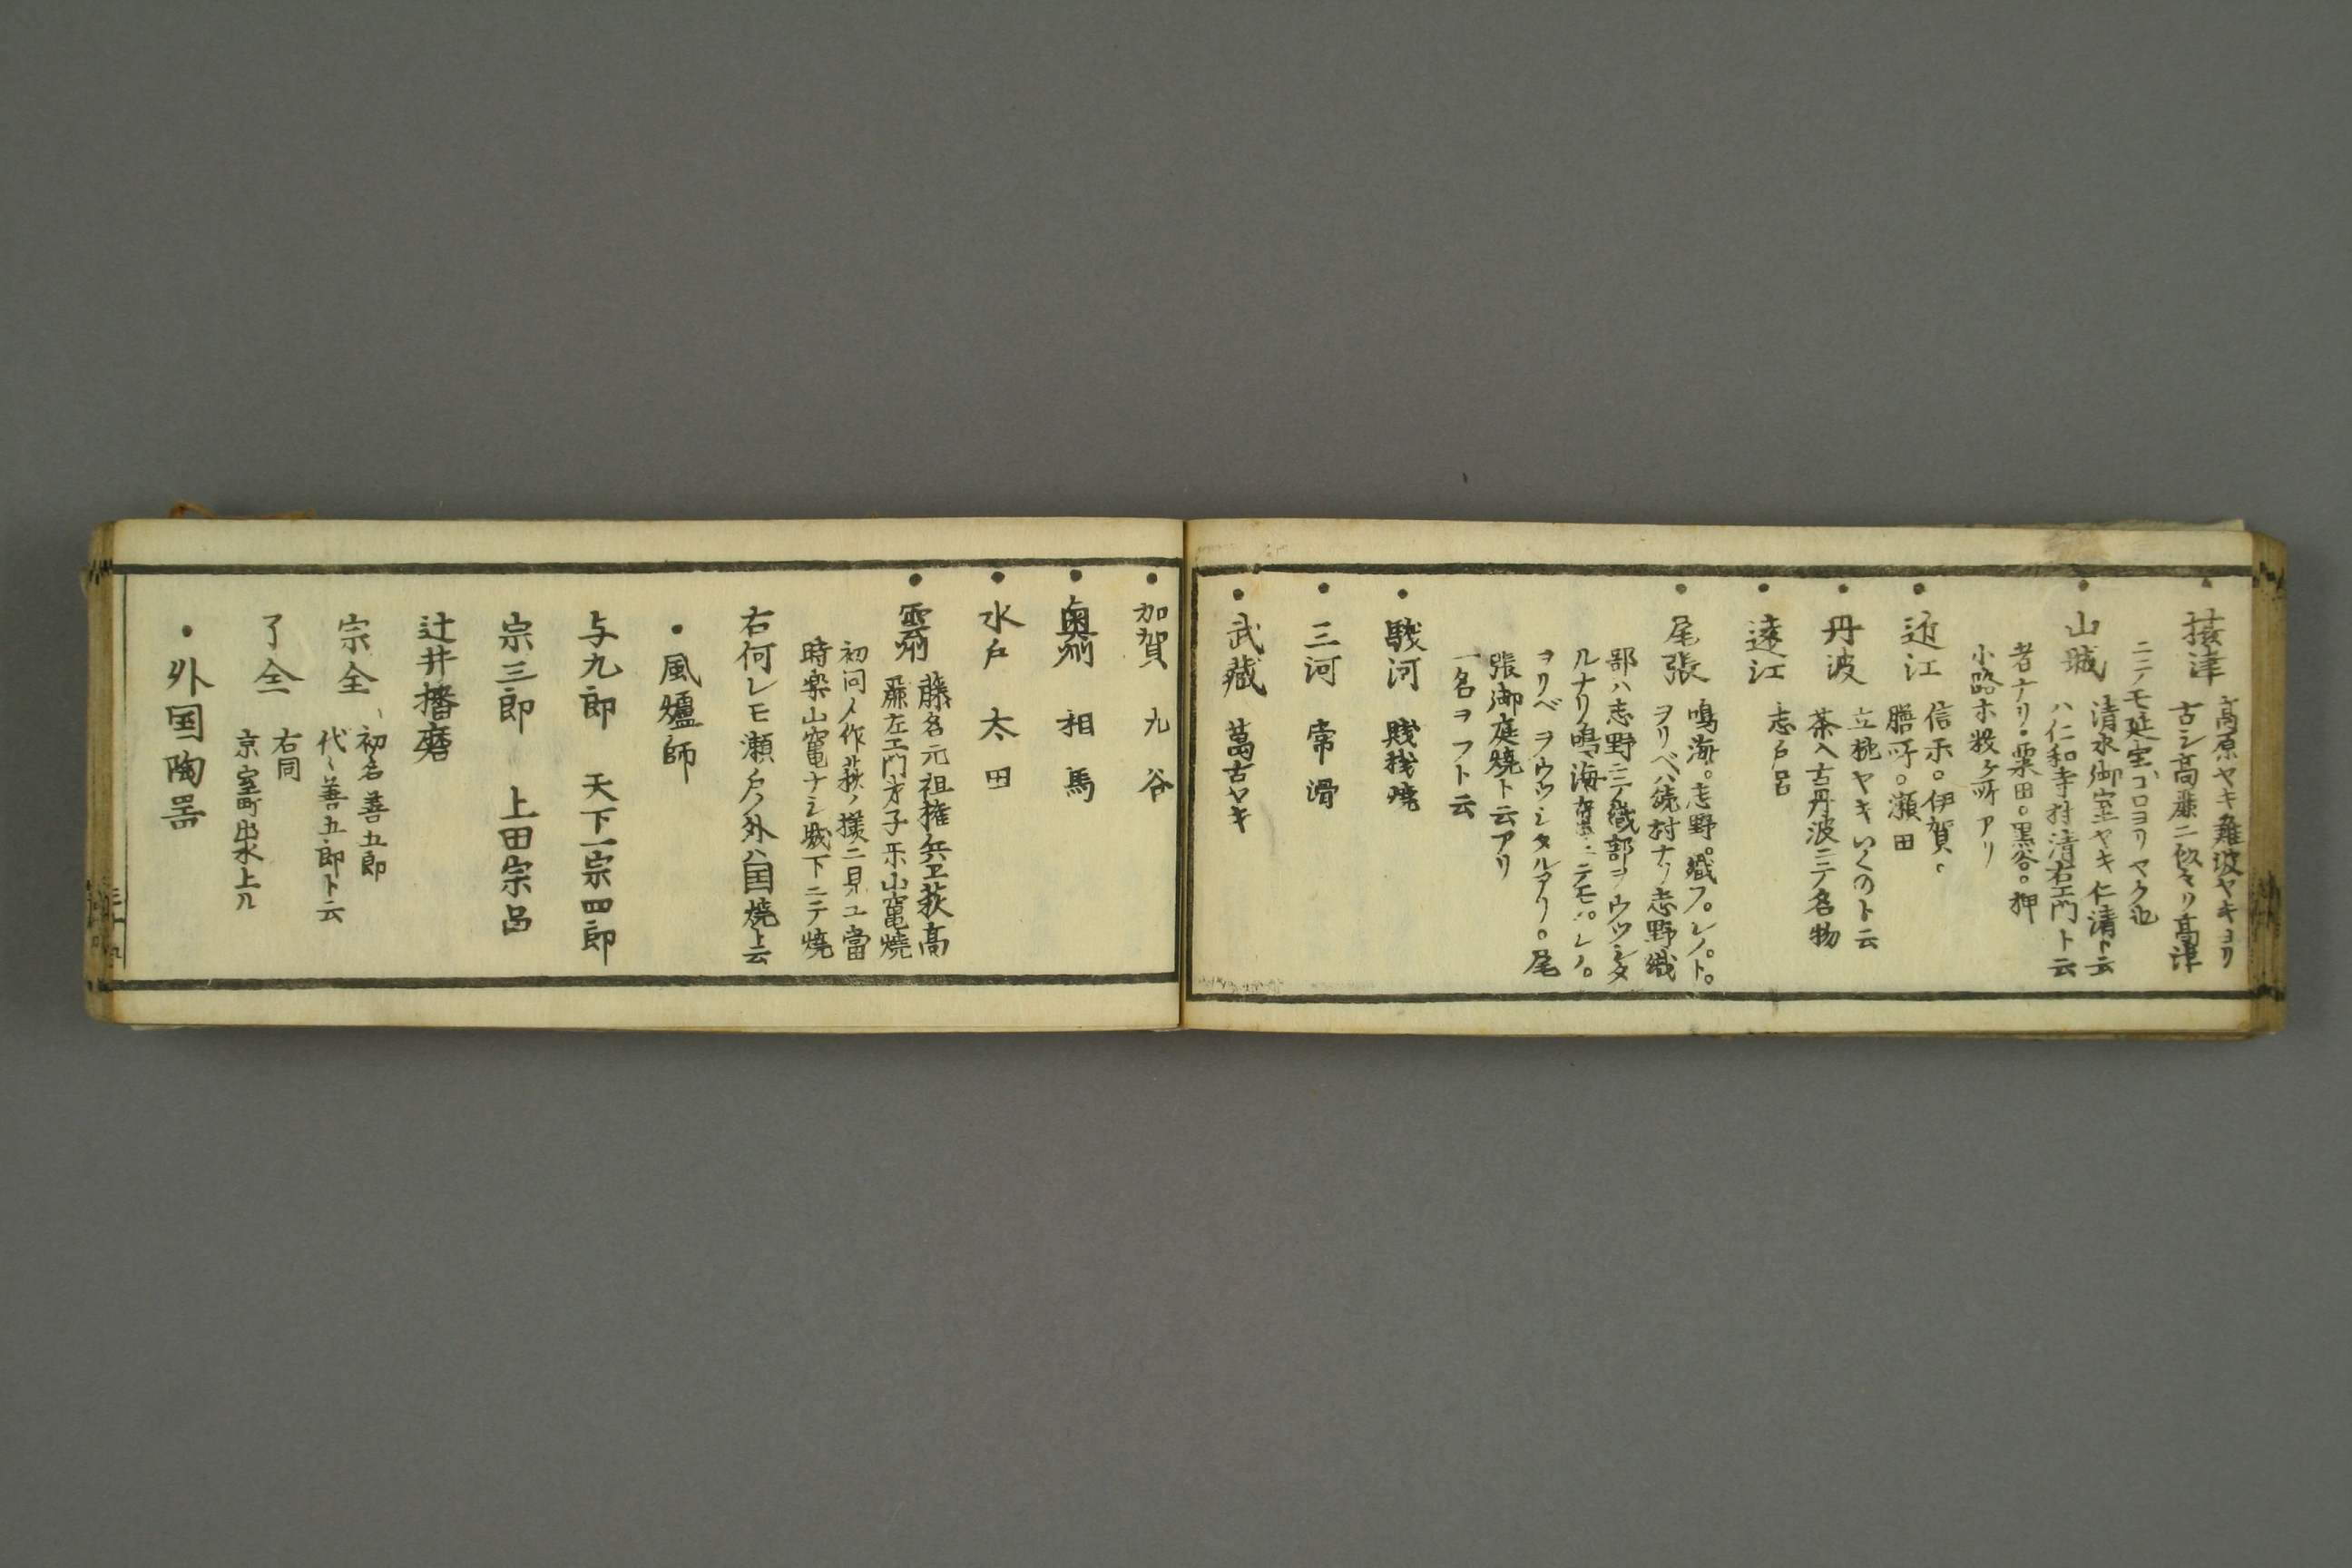 攝津
髙原ヤキ難波ヤキヨリ
古シ高藤ニ似タリ高津
ニテモ延宝ゴロヨリヤク也
山城
清水御室ヤキ仁清ト云
ハ仁和寺村清右エ門ト云
者ナリ・粟田。黒谷。押
小路ホ数ヶ所アリ
近江
信示。伊賀。
膳所。瀬田
丹波
立杭ヤキいくのト云
茶入古丹波ニテ名物
遠江
志戸呂
尾張
鳴海。志野。織
ヲリベハ
村ナリ志野織
部ハ志野ニテ織部ヲウツシタ
ルナリ鳴海
ヲリベヲウツシタルアリ。尾
張御庭焼ト云アリ
一名ヲフト云
駿河 賎機焼
三河 常滑
武藏 萬古ヤキ
加賀 九谷
奥刕 相馬
水戸 太田
雲刕
藤名元祖権兵卫萩髙
藤左エ門才子示山竃焼
初同人作萩ノ様ニ見ユ當
時楽山竃ナシ城下ニテ焼
右何レモ瀬戸ノ外ハ国焼ト云
風爐師
与九郎 天下一宗四郎
宗三郎 上田宗品
辻井播磨
宗全
初名善五郎
代〻善五郎ト云
了全
右同
京室町出水上ル
外国陶器